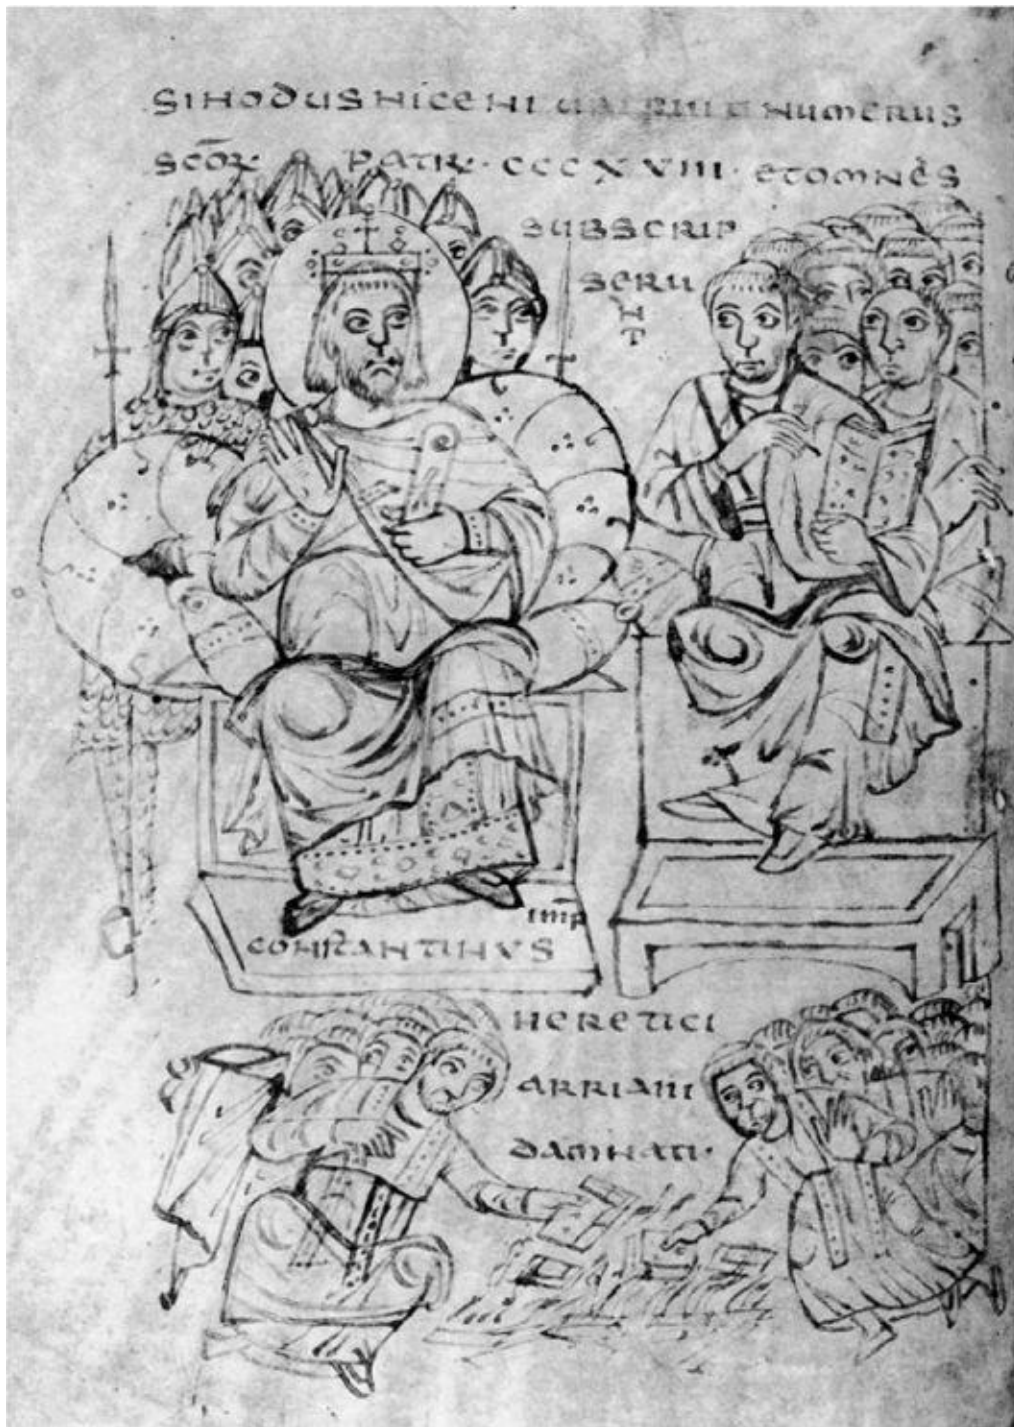 SINODUS NICENI UBI NUMERUS
SCŌR PATR · CCCXVIII · ET OMNES
SUBSCRIP
SERU
N
T
IMP
CONSTANTINUS
HERETICI
ARRIANI
DAMNATI ·